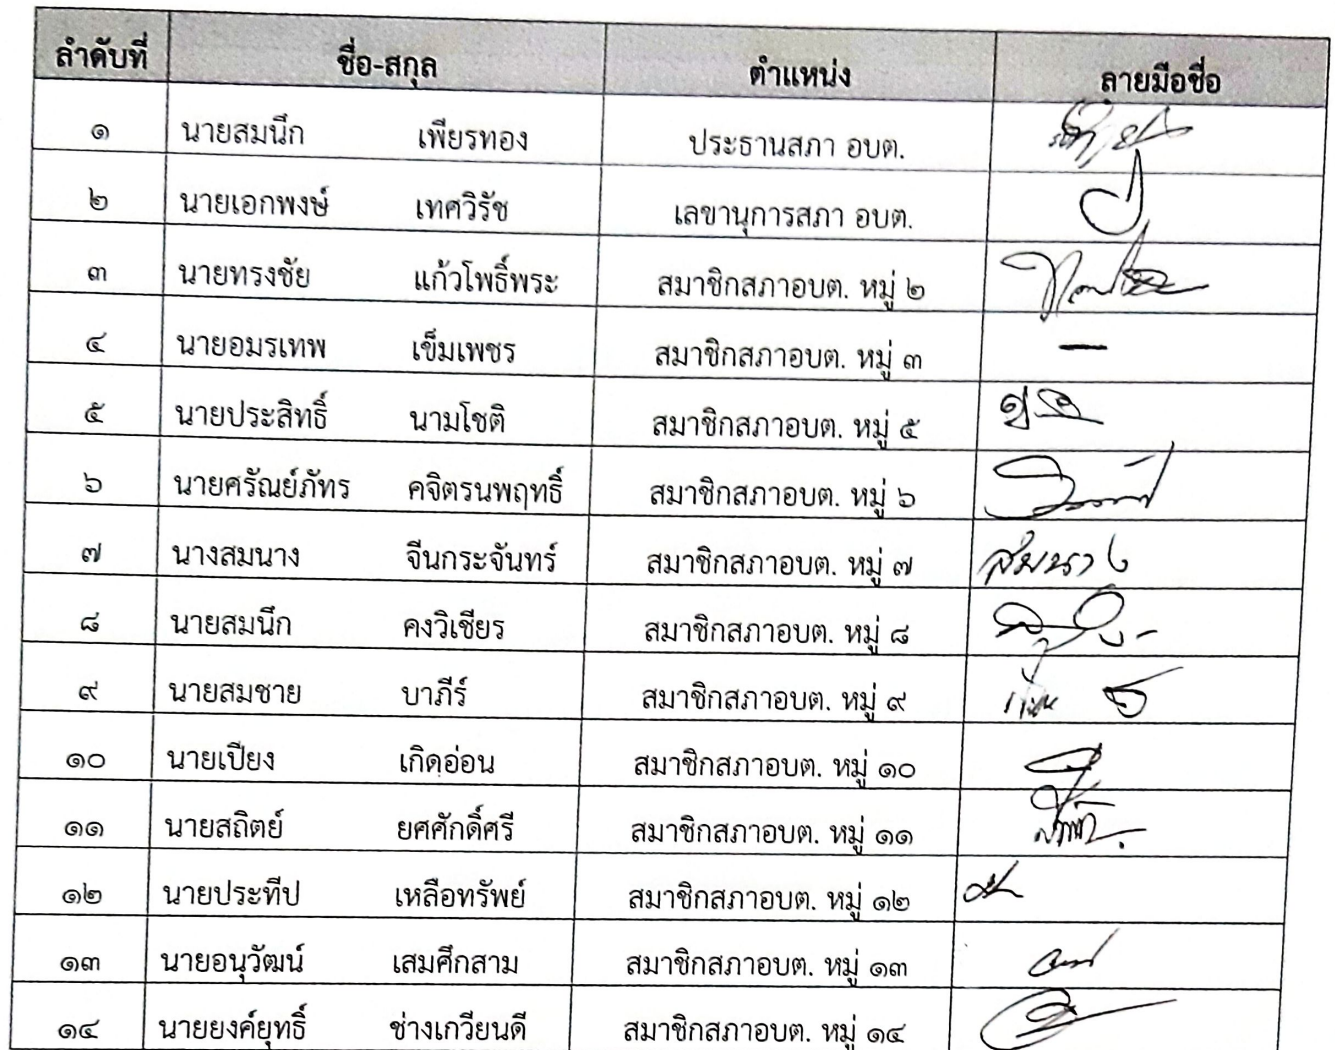 ลำดับที่ ชื่อ-สกุล ตำแหน่ง ลายมือชื่อ
๑ นายสมนึก เพียรทอง ประธานสภา อบต.
๒ นายเอกพงษ์ เทศวิรัช เลขานุการสภา อบต.
๓ นายทรงชัย แก้วโพธิ์พระ สมาชิกสภาอบต. หมู่ ๒
๔ นายอมรเทพ เข็มเพชร สมาชิกสภาอบต. หมู่ ๓ —
๕ นายประสิทธิ์ นามโชติ สมาชิกสภาอบต. หมู่ ๕
๖ นายศรัณย์ภัทร คจิตรนพฤทธิ์ สมาชิกสภาอบต. หมู่ ๖
๗ นางสมนาง จีนกระจันทร์ สมาชิกสภาอบต. หมู่ ๗ สมนาง
๘ นายสมนึก คงวิเชียร สมาชิกสภาอบต. หมู่ ๘
๙ นายสมชาย บาภีร์ สมาชิกสภาอบต. หมู่ ๙
๑๐ นายเปียง เกิดอ่อน สมาชิกสภาอบต. หมู่ ๑๐
๑๑ นายสถิตย์ ยศศักดิ์ศรี สมาชิกสภาอบต. หมู่ ๑๑
๑๒ นายประทีป เหลือทรัพย์ สมาชิกสภาอบต. หมู่ ๑๒
๑๓ นายอนุวัฒน์ เสมศึกสาม สมาชิกสภาอบต. หมู่ ๑๓
๑๔ นายยงค์ยุทธิ์ ช่างเกวียนดี สมาชิกสภาอบต. หมู่ ๑๔